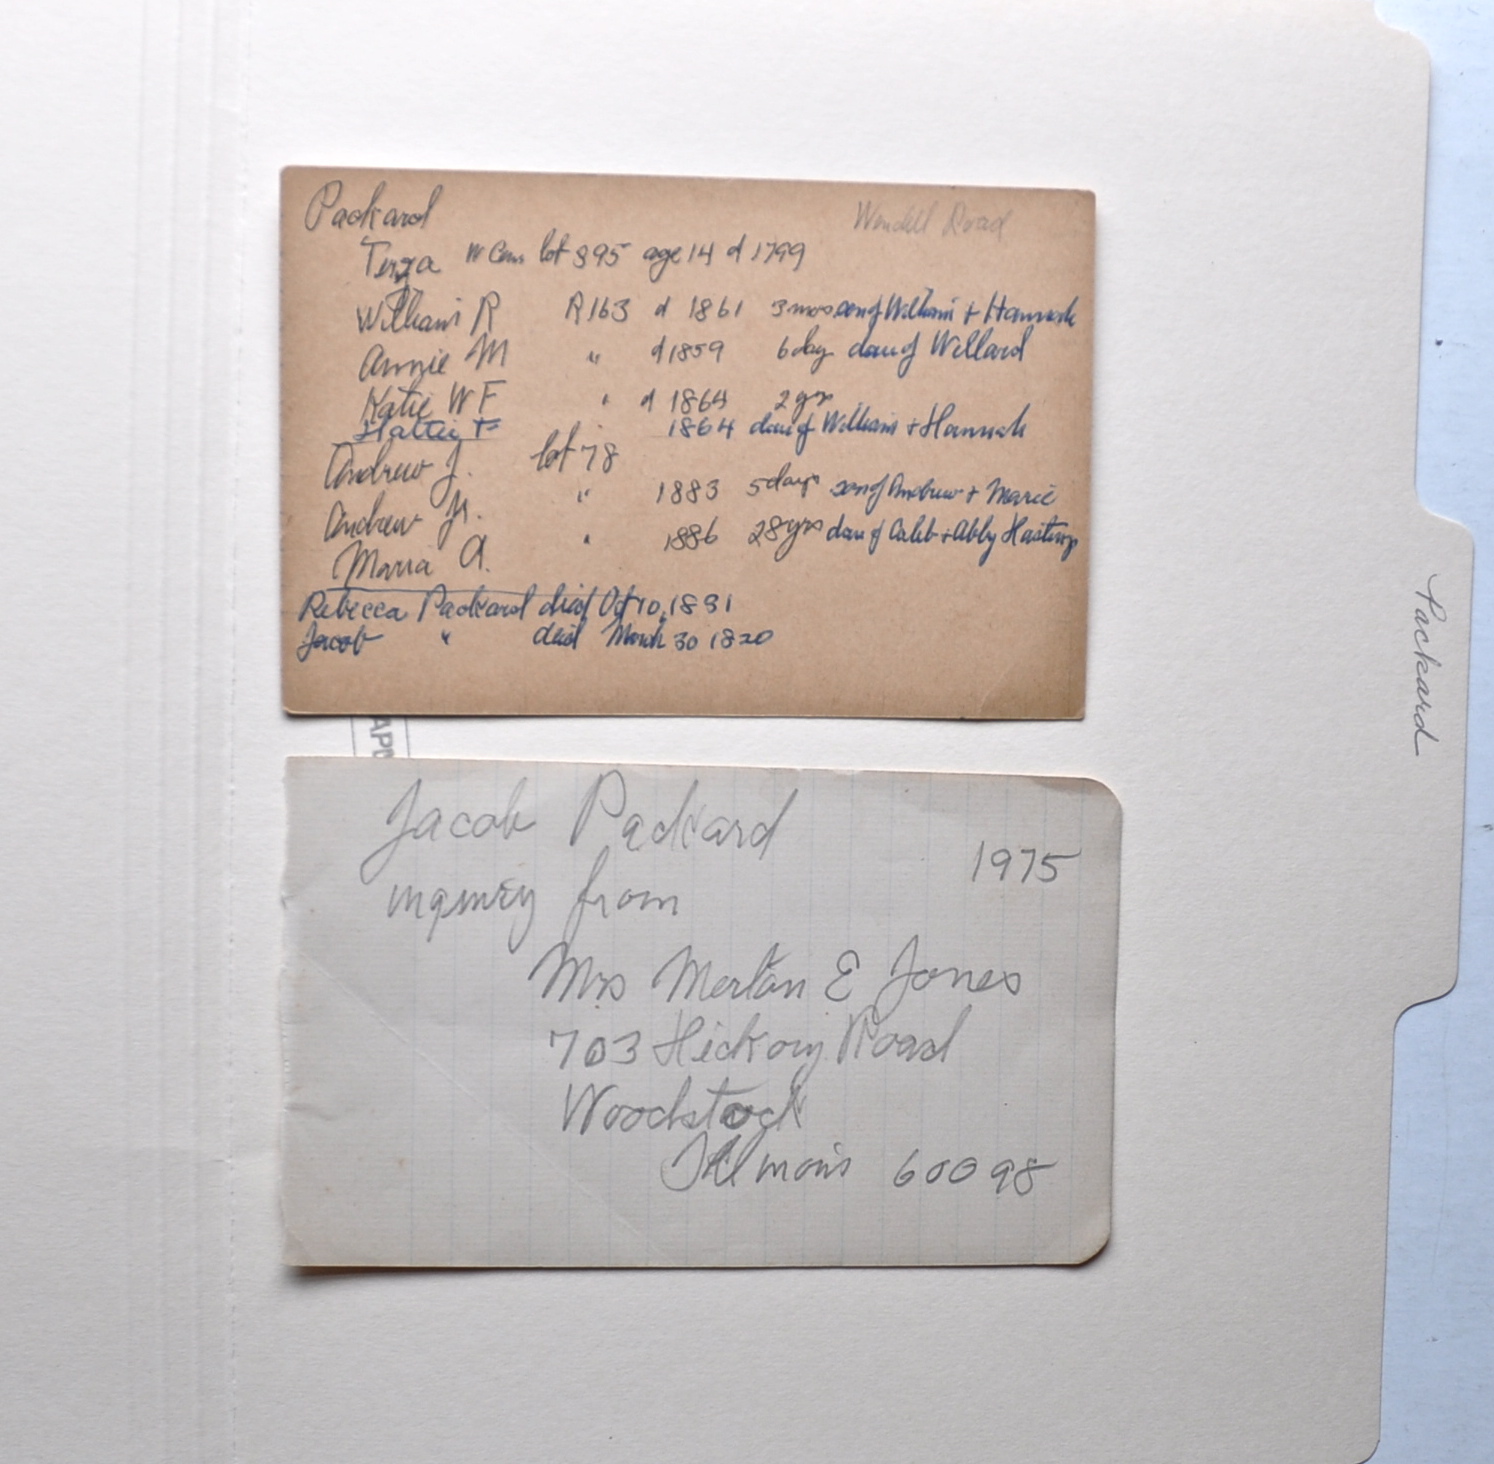 Packard
Wendell Road
Terza W Cem lot 395 age 14 d 1799
William R R163 d 1861 3 mos son of William + Hannah
Annie M " d 1859 6 day dau of Willard
Katie W F " d 1864 2 yrs
Hattie F 1864 dau of William + Hannah
Andrew J. lot 78
Andrew Jr. " 1883 5 days son of Andrew + Marie
Maria A. " 1886 28 yrs dau of Caleb + Abby Hastings
Rebecca Packard died Oct 10, 1831
Jacob " died March 30 1820
Packard
Jacob Packard
1975
inquiry from
Mrs Merton E Jones
703 Hickory Road
Woodstock
Illinois 60098